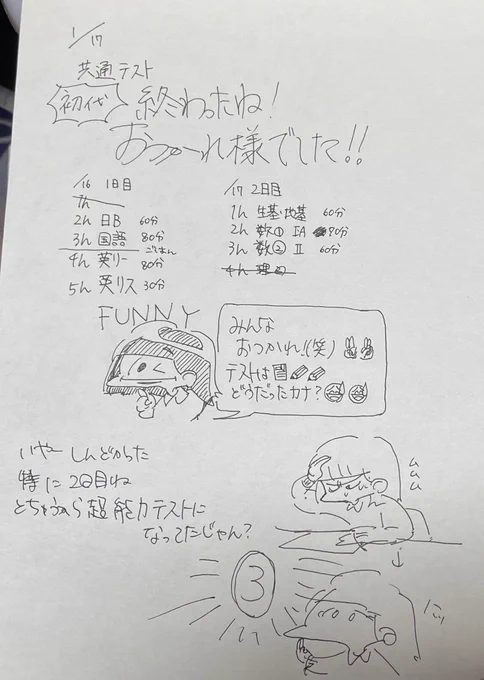 1/17
共通テスト
初代 終わったね!
おつかーれ様でした!!
1/16 1日目
1h
2h 日B 60分
3h 国語 80分
ごはん
4h 英リー 80分
5h 英リス 30分
1/17 2日目
1h 生基・地基 60分
2h 数① IA 90分
3h 数② II 60分
4h 理②
FUNNY
みんな
おつかれ!(笑)
テストは
どうだったカナ?
いやーしんどかった
特に2日目ね
とちゅうから超能力テストに
なってたじゃん?
ム
ム
ム
3